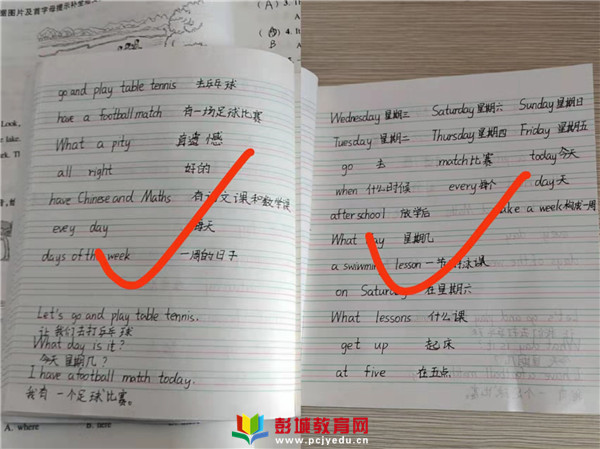 go and play table tennis 去打乒乓球
have a football match 有一场足球比赛
What a pity 真遗憾
all right 好的
have Chinese and Maths 有语文课和数学课
every day 每天
days of the week 一周的日子
Let's go and play table tennis.
让我们去打乒乓球
What day is it?
今天星期几?
I have a football match today.
我有一个足球比赛。
Wednesday 星期三 Saturday 星期六 Sunday 星期日
Tuesday 星期二 Thursday 星期四 Friday 星期五
go 去 match 比赛 today 今天
when 什么时候 every 每个 day 天
after school 放学后 make a week 构成一周
What day 星期几
a swimming lesson 一节游泳课
on Saturday 在星期六
What lessons 什么课
get up 起床
at five 在五点
A. where
彭城教育网
www.pcjyedu.cn